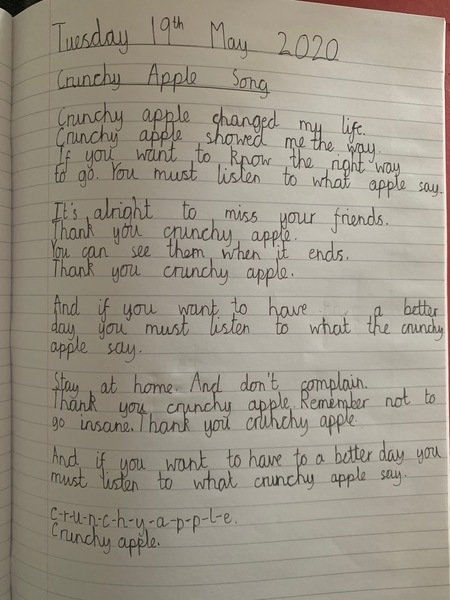 Tuesday 19th May 2020
Crunchy Apple Song
Crunchy apple changed my life.
Crunchy apple showed me the way.
If you want to know the right way
to go. You must listen to what apple say.
It's alright to miss your friends.
Thank you crunchy apple.
You can see them when it ends.
Thank you crunchy apple.
And if you want to have a better
day you must listen to what the crunchy
apple say.
Stay at home. And don't complain.
Thank you crunchy apple. Remember not to
go insane. Thank you crunchy apple.
And if you want to have to a better day you
must listen to what crunchy apple say.
c-r-u-n-c-h-y-a-p-p-l-e.
Crunchy apple.